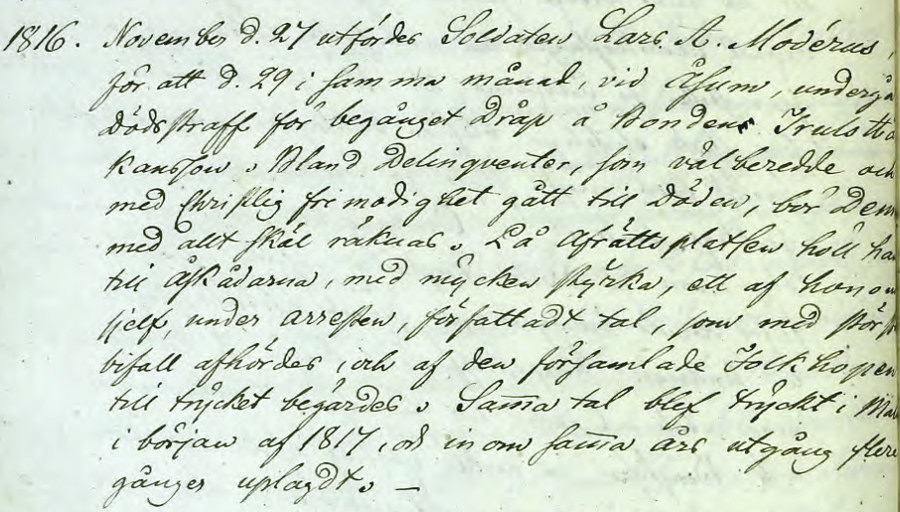 1816. November d. 27 utfördes Soldaten Lars A. Modérus,
för att d. 29 i samma månad, vid Åsum, undergå
dödsstraff för begånget Dråp å Bonden Truls Hå
kansson. Bland Delinqventer, som väl beredde och
med Christlig frimodighet gått till döden, bör Den
med allt skäl räknas. På Afrättsplatsen höll ha
till Åskådarna, med mycken styrka, ett af honom
sjelf, under arresten, författadt tal, som med störst
bifall afhördes, och af den församlade Folkhopen
till trycket begärdes. Sam̅a tal blef tryckt i Mal
i början af 1817, och inom sam̅a års utgång flere
gånger uplagdt. —